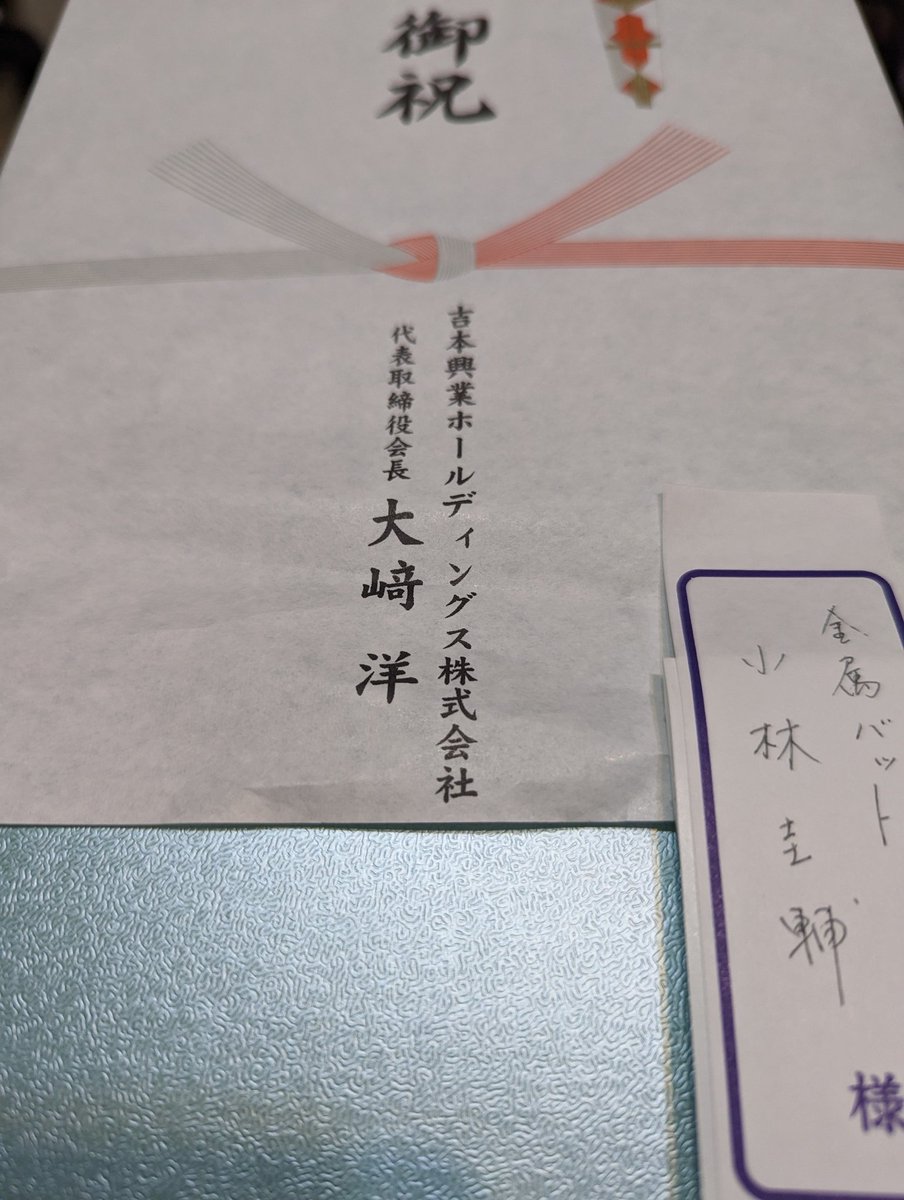 御祝
吉本興業ホールディングス株式会社
代表取締役会長 大﨑 洋
金属バット
小林圭輔
様